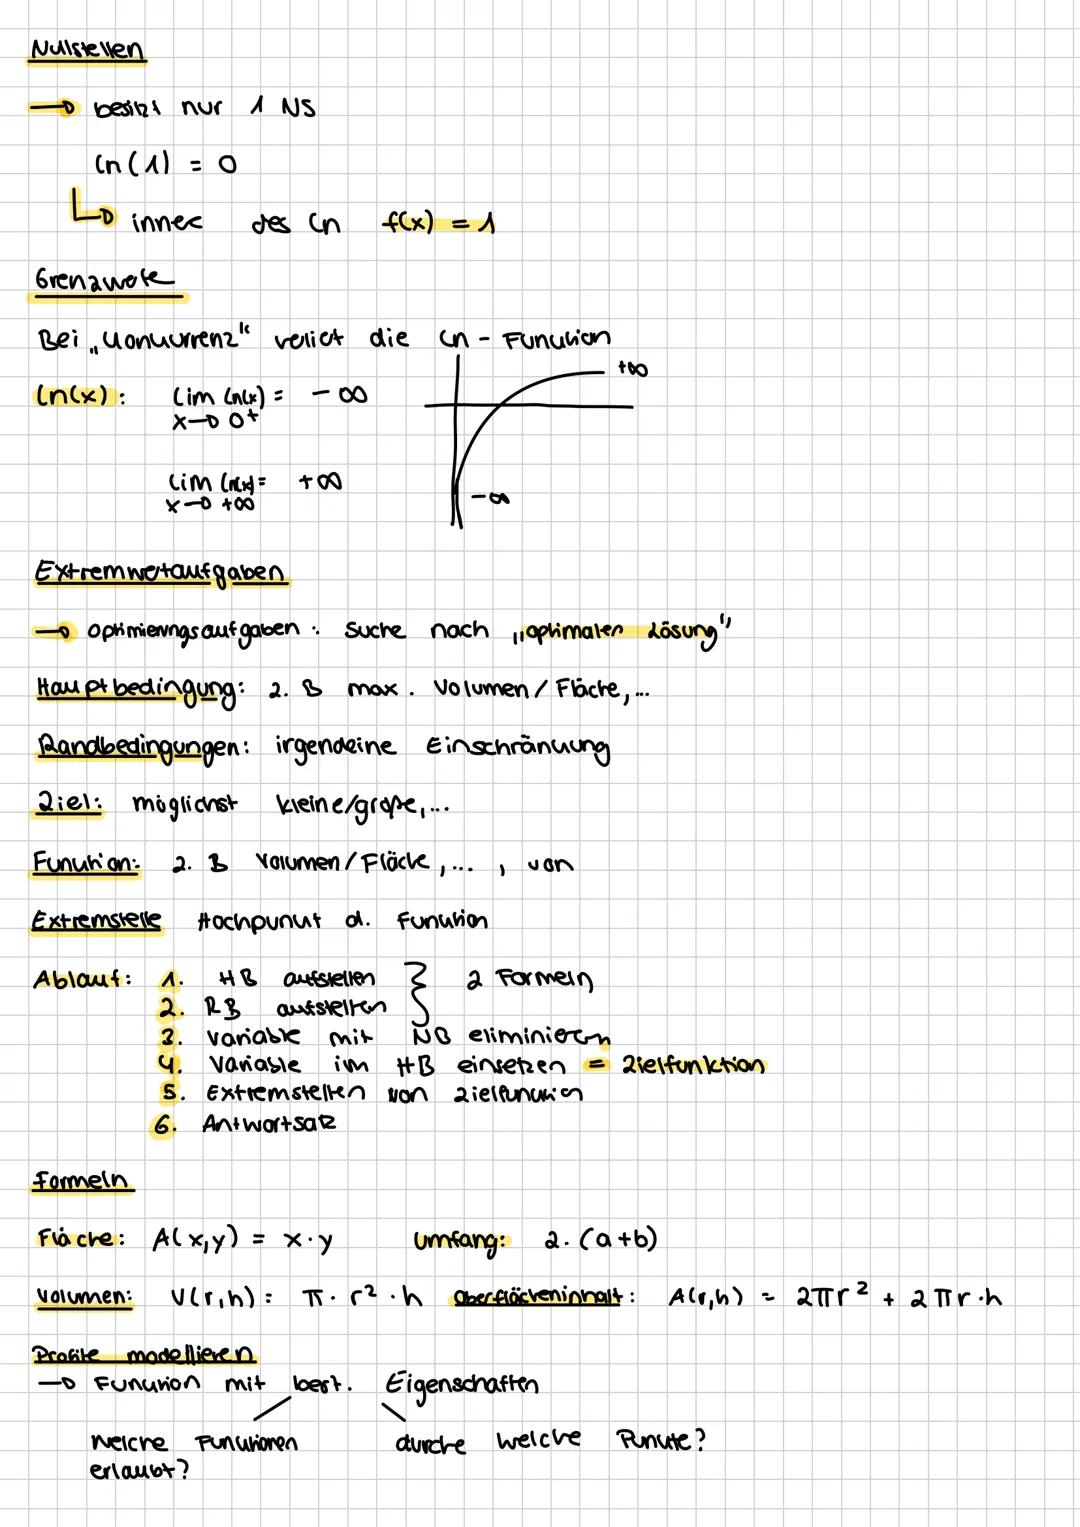 Nullstellen
→ besitzt nur 1 NS
ln(1) = 0
↳ innere des ln f(x) = 1
Grenzwerte
Bei „Konkurrenz" verliert die ln - Funktion
ln(x): lim ln(x) = - ∞
x→0+
+∞
lim ln(x) = +∞
x→+∞
-∞
Extremwertaufgaben
→ Optimierungsaufgaben : Suche nach „optimalen Lösung"
Hauptbedingung: z. B max. Volumen / Fläche,...
Randbedingungen: irgendeine Einschränkung
Ziel: möglichst kleine/große,...
Funktion: z. B Volumen/Fläche,... , von
Extremstelle Hochpunkt d. Funktion
Ablauf: 1. HB aufstellen } 2 Formeln
2. RB aufstellen
3. Variable mit NB eliminieren
4. Variable im HB einsetzen = Zielfunktion
5. Extremstellen von Zielfunktion
6. Antwortsatz
Formeln
Fläche: A(x,y) = x·y Umfang: 2·(a+b)
Volumen: V(r,h) = π · r² · h Oberflächeninhalt: A(r,h) = 2πr² + 2πr·h
Profile modellieren
→ Funktion mit best. Eigenschaften
welche Funktionen durche welche Punkte?
erlaubt?